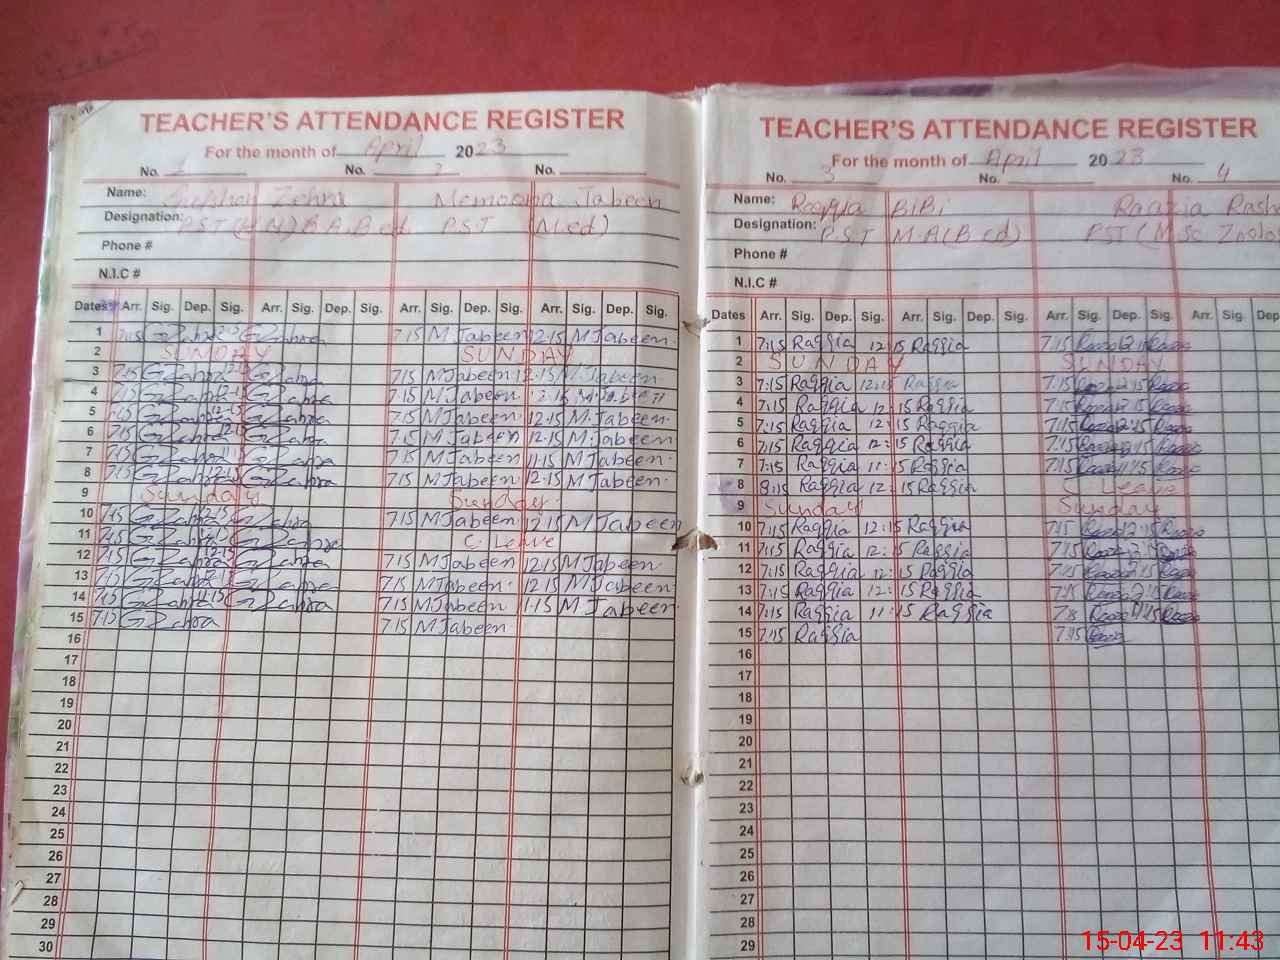 TEACHER'S ATTENDANCE REGISTER
For the month of April 2023
No. 1 No. 2 No.
Name: Zehra Memoona Jabeen
Designation: P.S.T B.A.B.ed P.S.T (M.ed)
Phone #
N.I.C #
Dates Arr. Sig. Dep. Sig. Arr. Sig. Dep. Sig. Arr. Sig. Dep. Sig. Arr. Sig. Dep. Sig.
1 7:15 GZahra 12:15 GZahra 7:15 M Jabeen 12:15 M Jabeen
2 SUNDAY SUNDAY
3 7:15 GZahra 12:15 GZahra 7:15 M Jabeen 12:15 M Jabeen
4 7:15 GZahra 12:15 GZahra 7:15 M Jabeen 12:15 M Jabeen
5 7:15 GZahra 12:15 GZahra 7:15 M Jabeen 12:15 M Jabeen
6 7:15 GZahra 12:15 GZahra 7:15 M Jabeen 12:15 M Jabeen
7 7:15 GZahra GZahra 7:15 M Jabeen 11:15 M Jabeen
8 7:15 GZahra 12:15 GZahra 7:15 M Jabeen 12:15 M Jabeen
9 Sunday Sunday
10 7:15 GZahra 12:15 GZahra 7:15 M Jabeen 12:15 M Jabeen
11 7:15 GZahra GZahra C. Leave
12 7:15 GZahra 12:15 GZahra 7:15 M Jabeen 12:15 M Jabeen
13 7:15 GZahra GZahra 7:15 M Jabeen 12:15 M Jabeen
14 7:15 GZahra 11:15 GZahra 7:15 M Jabeen 11:15 M Jabeen
15 7:15 GZahra 7:15 M Jabeen
16
17
18
19
20
21
22
23
24
25
26
27
28
29
30
TEACHER'S ATTENDANCE REGISTER
For the month of April 2023
No. 3 No. No. 4
Name: Raqqia BiBi Raazia
Designation: P.S.T M.A(B.ed) PST (M.Sc
Phone #
N.I.C #
Dates Arr. Sig. Dep. Sig. Arr. Sig. Dep. Sig. Arr. Sig. Dep. Sig. Arr. Sig. Dep.
1 7:15 Raqqia 12:15 Raqqia 7:15 12:15
2 SUNDAY SUNDAY
3 7:15 Raqqia 12:15 Raqqia 7:15 12:15
4 7:15 Raqqia 12:15 Raqqia 7:15 12:15
5 7:15 Raqqia 12:15 Raqqia 7:15 12:15
6 7:15 Raqqia 12:15 Raqqia 7:15 12:15
7 7:15 Raqqia 11:15 Raqqia 7:15 11:15
8 8:15 Raqqia 12:15 Raqqia C. Leave
9 Sunday Sunday
10 7:15 Raqqia 12:15 Raqqia 7:15 12:15
11 7:15 Raqqia 12:15 Raqqia 7:15 12:15
12 7:15 Raqqia 12:15 Raqqia 7:15 12:15
13 7:15 Raqqia 12:15 Raqqia 7:15 12:15
14 7:15 Raqqia 11:15 Raqqia 7:15 11:15
15 7:15 Raqqia 7:15
16
17
18
19
20
21
22
23
24
25
26
27
28
29
15-04-23 11:43